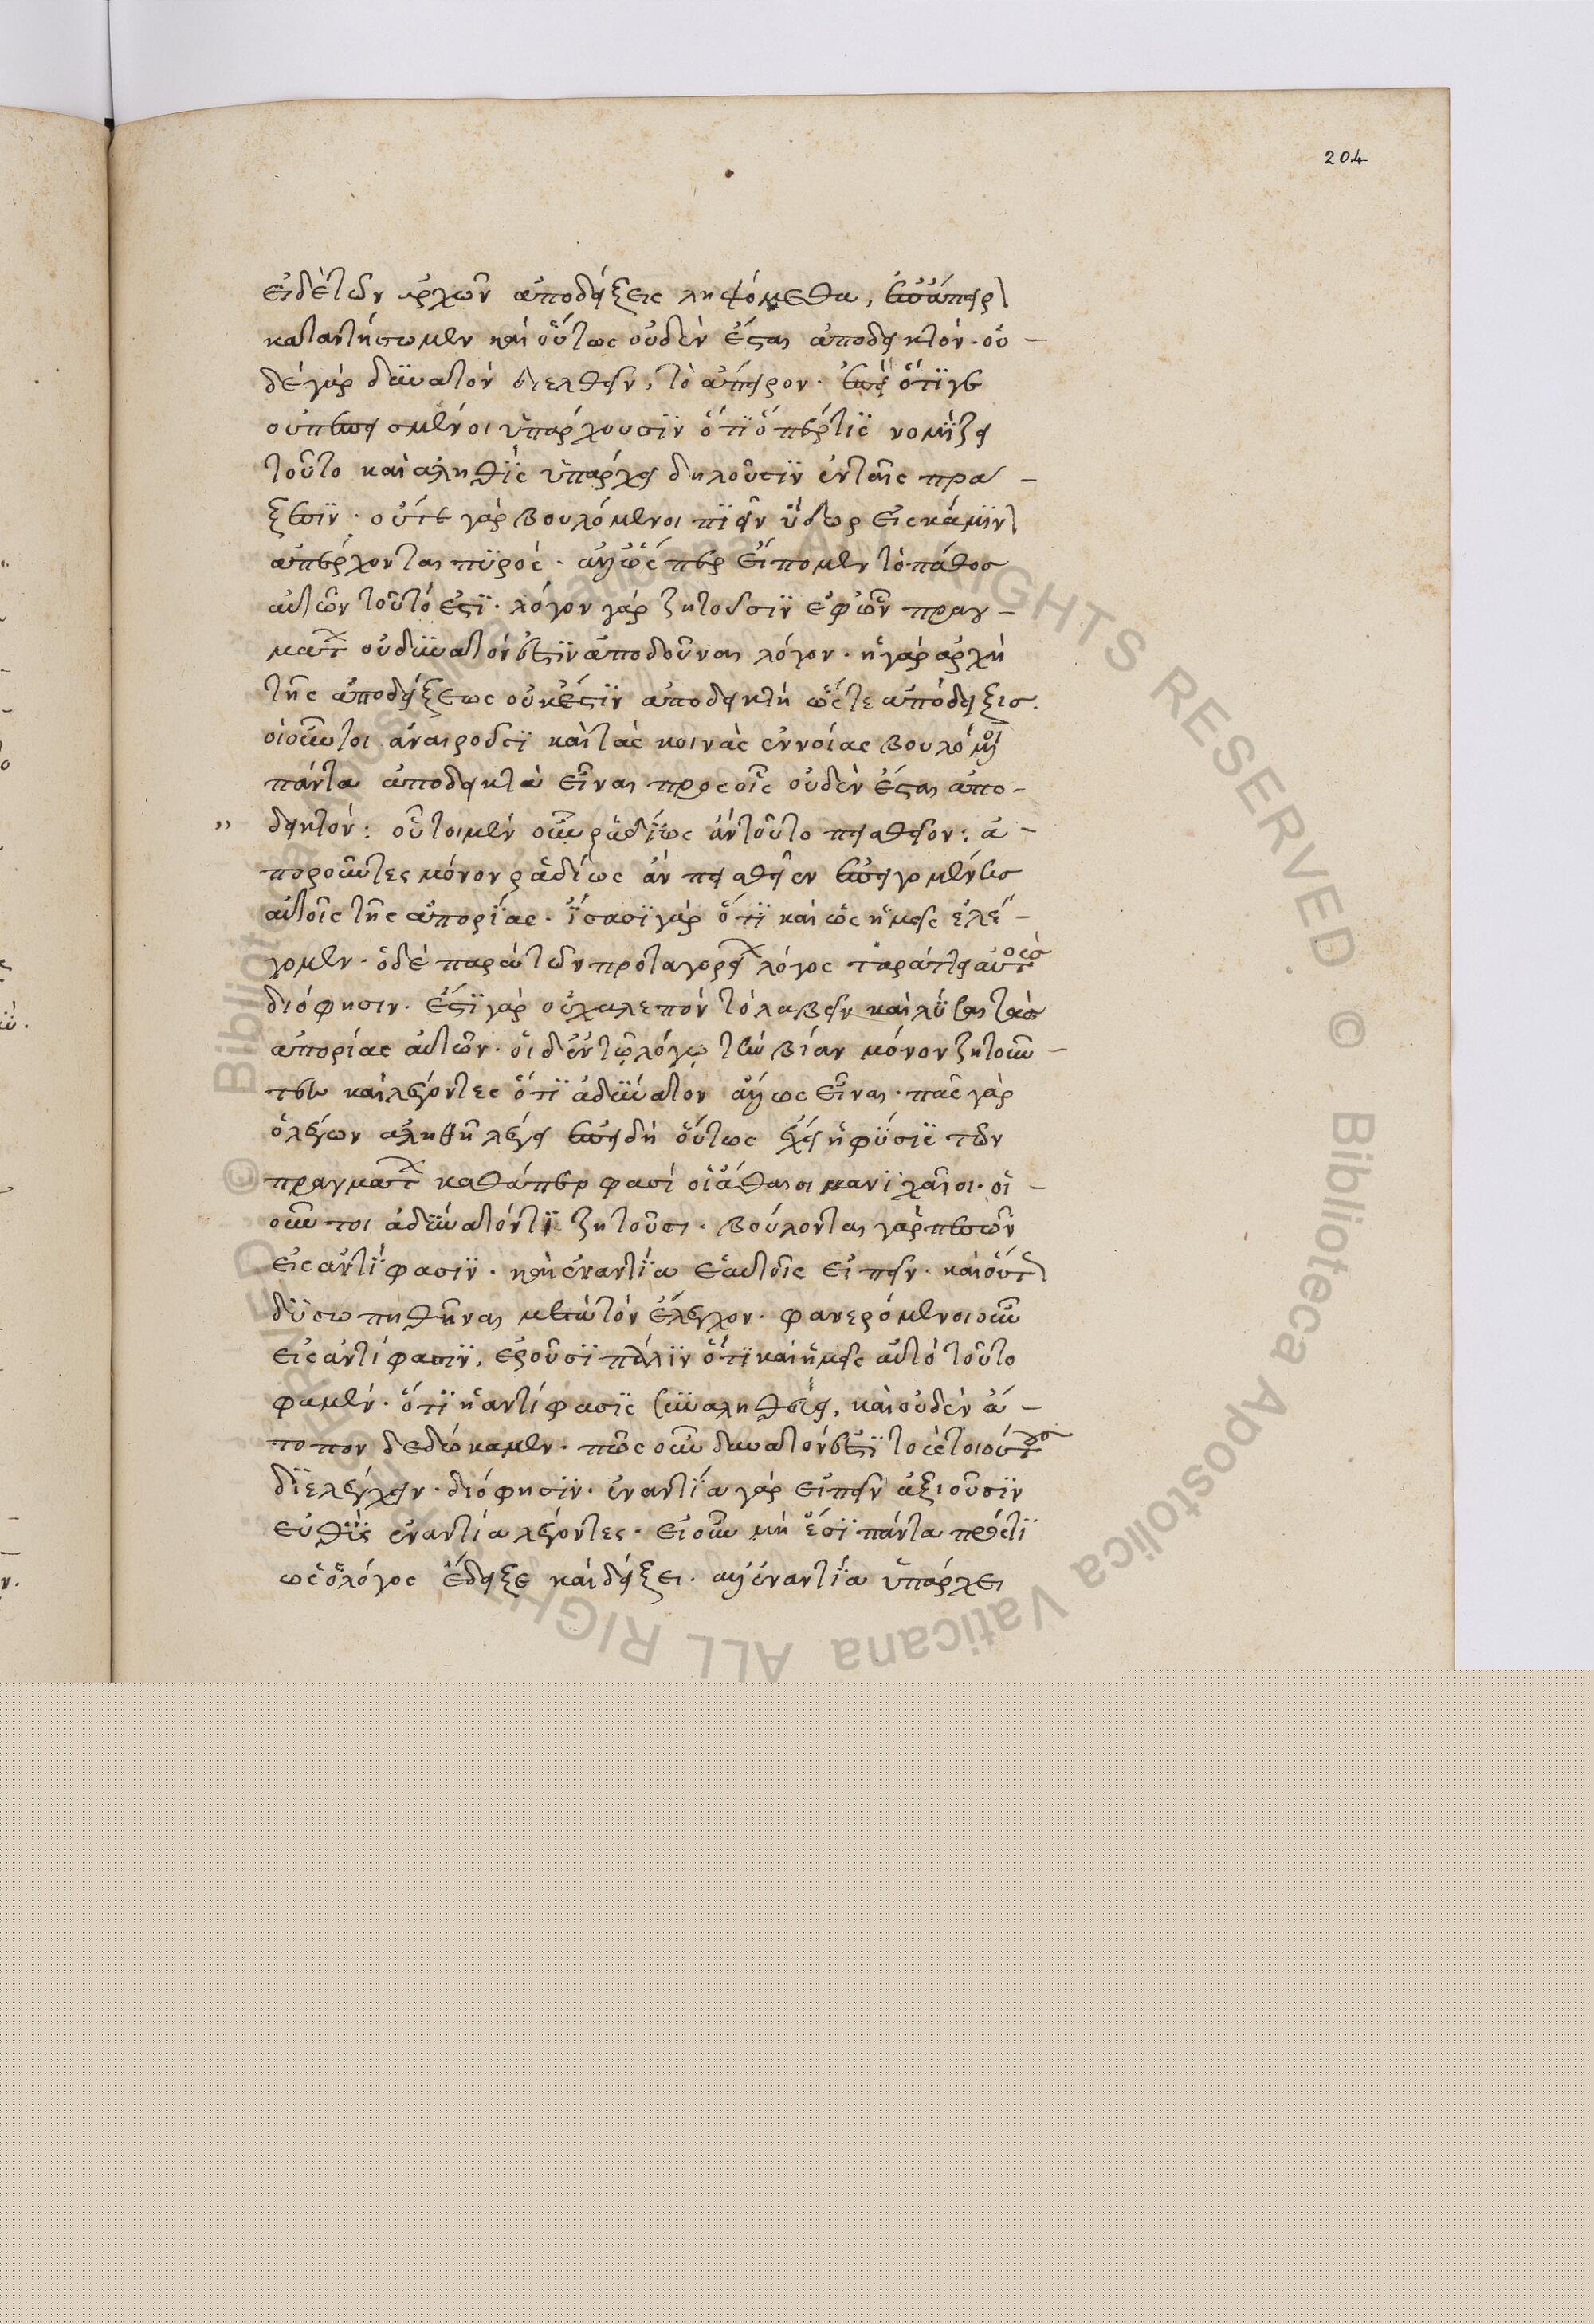 204
εἰ δὲ τῶν ἀρχῶν ἀποδείξεις ληψόμεθα, ἐπ' ἄπειρ
καταντήσωμεν καὶ οὕτως οὐδὲν ἔσται ἀποδεικτόν. οὐ-
δὲ γὰρ δυνατὸν διελθεῖν, τὸ ἄπειρον. ἐπεὶ ὅτι γε
οὐ πεπεισμένοι ὑπάρχουσιν ὅτι ὅπέρ τις νομίζει
τοῦτο καὶ ἀληθὲς ὑπάρχει δηλοῦσιν ἐν ταῖς πρά-
ξεσιν. οὔτε γὰρ βουλόμενοι πιεῖν ὕδωρ εἰς κάμιν
ἀπέρχονται πυρός. ἀλλ' ὥς περ εἴπομεν τὸ πάθος
αὐτῶν τοῦτό ἐστι. λόγον γὰρ ζητοῦσιν ἐφ' ὧν πραγ-
μάτ οὐ δυνατόν ἐστιν ἀποδοῦναι λόγον. ἡ γὰρ ἀρχὴ
τῆς ἀποδείξεως οὐκ ἔστιν ἀποδεικτὴ ὥστε ἀπόδειξις.
οἱ οὖν τοι ἀναιροῦσι καὶ τὰς κοινὰς ἐννοίας βουλόμοι
πάντα ἀποδεικτὰ εἶναι πρὸς οἷς οὐδὲν ἔσται ἀπο-
„ δεικτόν: οὗτοι μὲν οὖν ῥαδίως ἂν τοῦτο πεισθεῖον: ἀ-
ποροῦντες μόνον ῥαδίως ἂν πεισθεῖεν
αὐτοῖς τῆς ἀπορίας. ἴσασι γὰρ ὅτι καὶ ὡς ἡμεῖς ἐλέ-
γομεν. ὁ δὲ παρὰ τῶν πρωταγορεί λόγος ταράττει αὐτούς
διό φησιν. ἔστι γὰρ οὐ χαλεπὸν τὸ λαβεῖν καὶ λῦσαι τὰς
ἀπορίας αὐτῶν. οἱ δ' ἐν τῷ λόγῳ τὴν βίαν μόνον ζητοῦν-
τες καὶ λέγοντες ὅτι ἀδύνατον ἄλλως εἶναι. πᾶς γὰρ
ὁ λέγων ἀληθῆ λέγει ἐπειδὴ οὕτως ἔχει ἡ φύσις τῶν
πραγμάτ καθάπερ φασὶ οἱ ἄθεοι μανιχαῖοι. οἱ-
οῦν τοι ἀδύνατόν τι ζητοῦσι. βούλονται γὰρ πεσεῖν
εἰς ἀντίφασιν. καὶ ἐναντία ἑαυτοῖς εἰπεῖν. καὶ οὕτ
δυσωπηθῆναι μετὰ τὸν ἔλεγχον. φανερόμενοι οὖν
εἰς ἀντίφασιν, ἐροῦσι πάλιν ὅτι καὶ ἡμεῖς αὐτὸ τοῦτο
φαμέν. ὅτι ἡ ἀντίφασις συναληθεύει, καὶ οὐδὲν ἄ-
τοπον δεδώκαμεν. πῶς οὖν δυνατόν ἐστι τοὺς τοιούτους
διελέγχειν. διό φησιν. ἐναντία γὰρ εἰπεῖν ἀξιοῦσιν
εὐθὺς ἐναντία λέγοντες. εἰ οὖν μή ἐστι πάντα πρός τι
ὡς ὁ λόγος ἔδειξε καὶ δείξει. ἀλλ' ἐναντία ὑπάρχει
© Biblioteca Apostolica Vaticana ALL RIGHTS RESERVED.